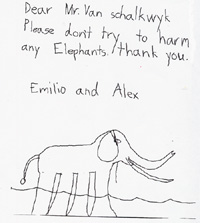 Dear Mr. Van schalkwyk
Please dont try to harm
any Elephants. thank you.
Emilio and Alex